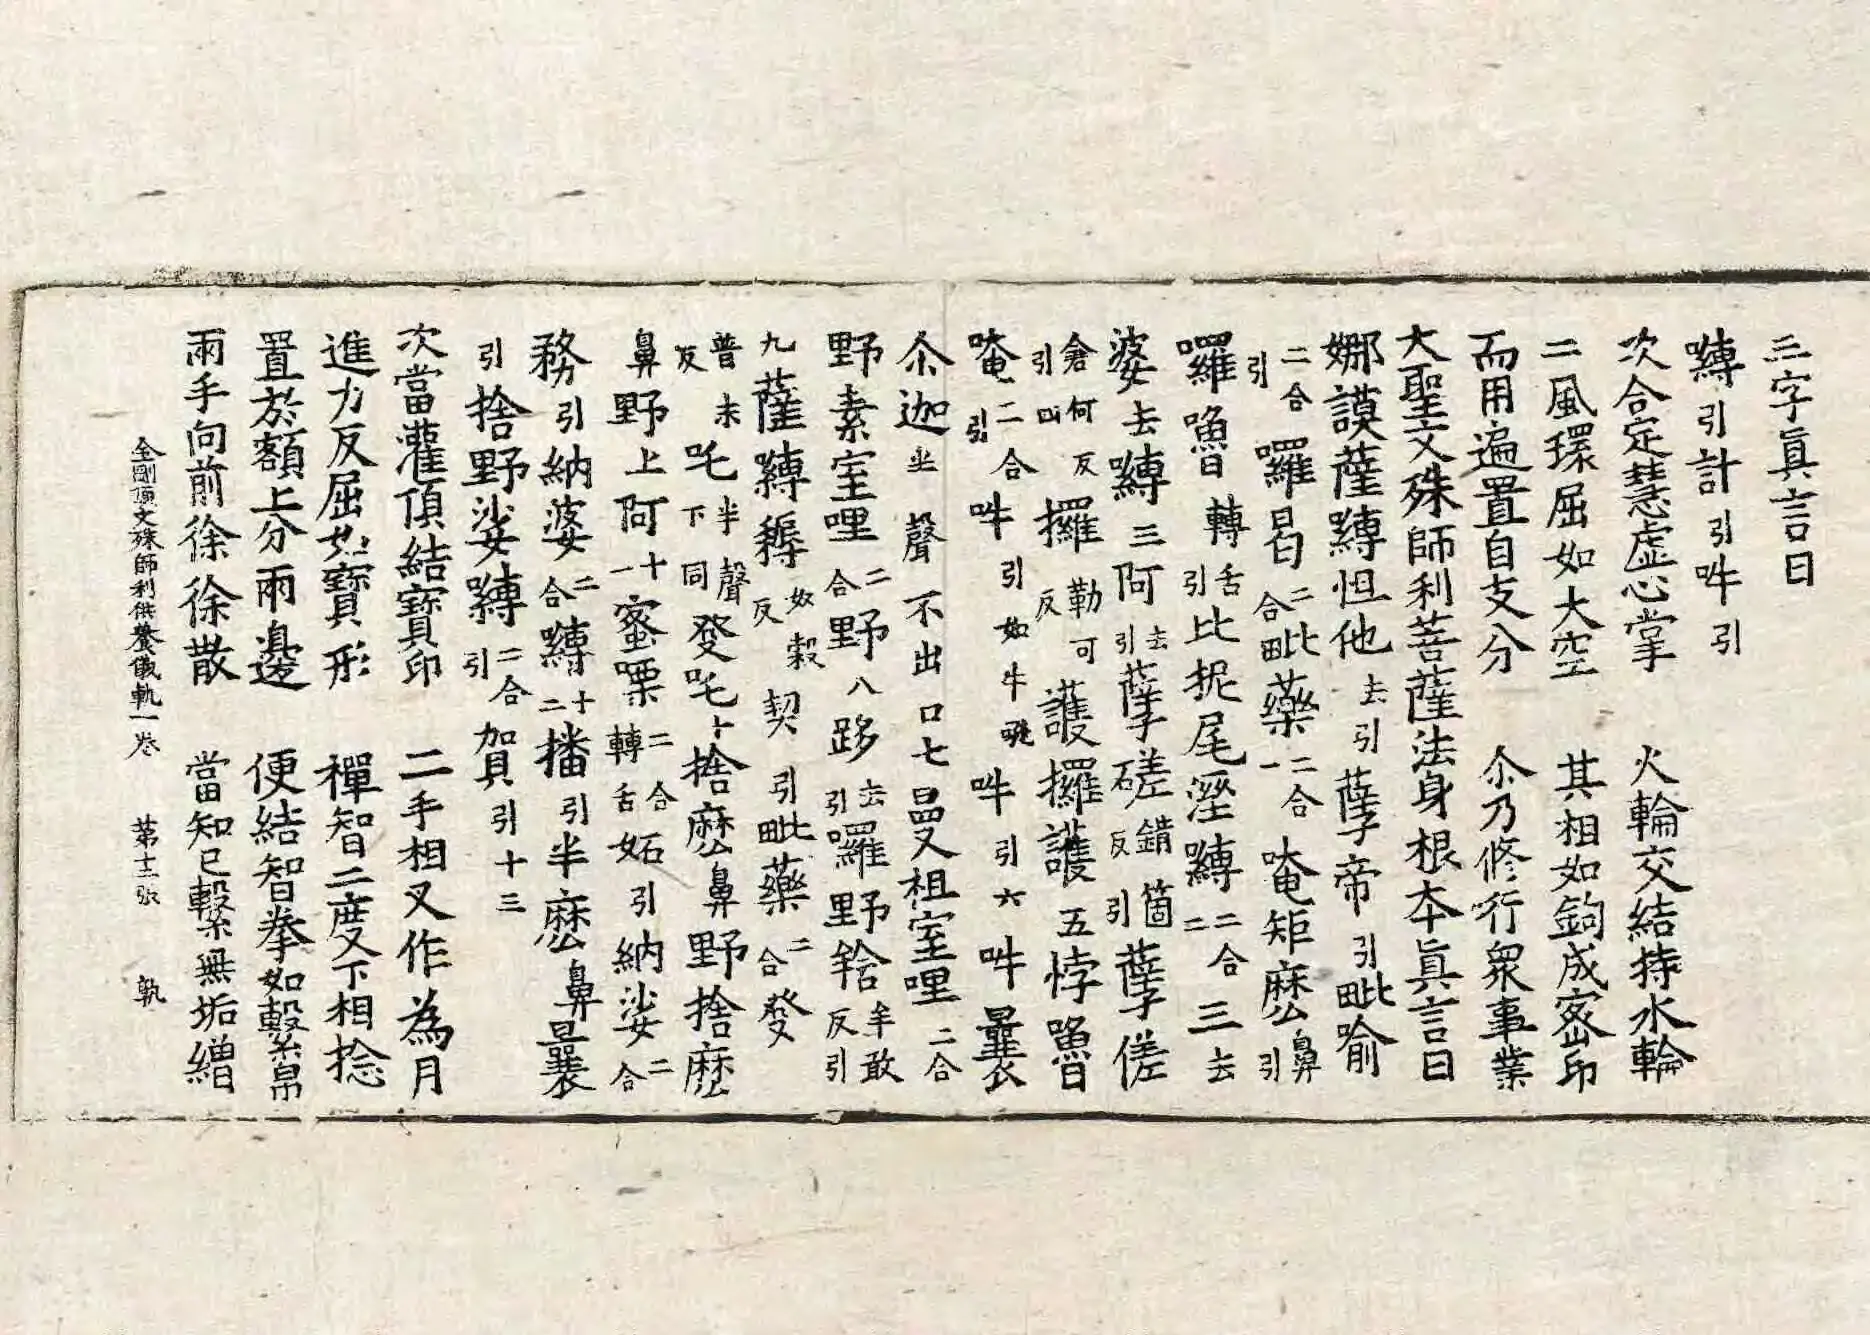 三字真言曰
嚩引計引吽引
次合定慧虛心掌 火輪交結持水輪
二風環屈如大空 其相如鉤成密印
而用遍置自支分 尒乃修行衆事業
大聖文殊師利菩薩法身根本真言曰
娜謨薩嚩怛他去引孽帝引毗喻
二合引囉曷二合毗藥二合一唵矩麽鼻引
囉嚕轉舌引比捉尾溼嚩二合二三去
婆去嚩三阿去引孽磋錯箇反引孽傞
倉何反引囉勒可反護攞護五悖嚕
唵二合引吽引如牛吼吽引六吽曩
尒迦半聲不出口七曼祖室哩二合
野素室哩二合野八跢去引囉野 牟敢反引
九薩嚩 奴穀反契引毗藥二合癹
普末反吒半聲下同癹吒十捨麽鼻野捨麽
鼻野上阿十一蜜㗚二合轉舌妬引納婆二合
務引納婆二合嚩十二播引半麽鼻曩
引捨野娑嚩二合引賀引十三
次當灌頂結寶印 二手相叉作為月
進力反屈如寶形 禪智二度下相捻
置於額上分兩邊 便結智拳如繫帛
兩手向前徐徐散 當知已繫無垢繒
金剛頂文殊師利供養儀軌一卷 第十二張 孰